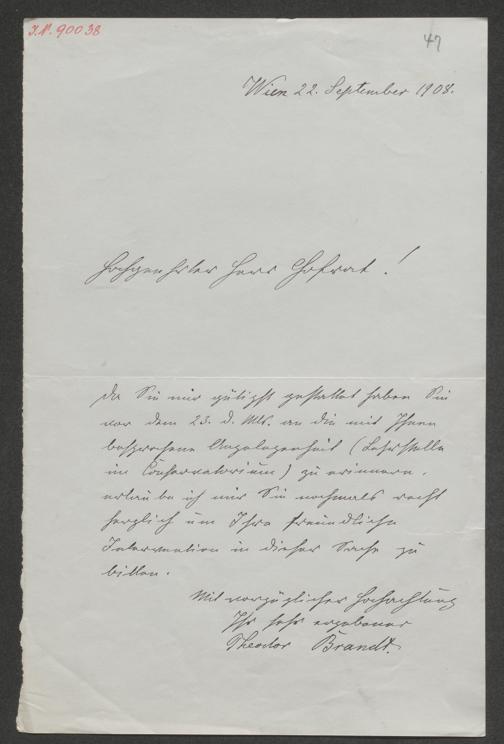 I.N. 90038
47
Wien 22. September 1908.
Hochgeehrter Herr Hofrat!
Da Sie mir gütigst gestattet haben Sie
vor dem 23. d. Mts. an die mit Ihnen
besprochene Angelegenheit (Lehrstelle
im Conservatorium) zu erinnern,
erlaube ich mir Sie nochmals recht
herzlich um Ihre freundliche
Intervention in dieser Sache zu
bitten.
Mit vorzüglicher Hochachtung
Ihr sehr ergebener
Theodor Brandt.